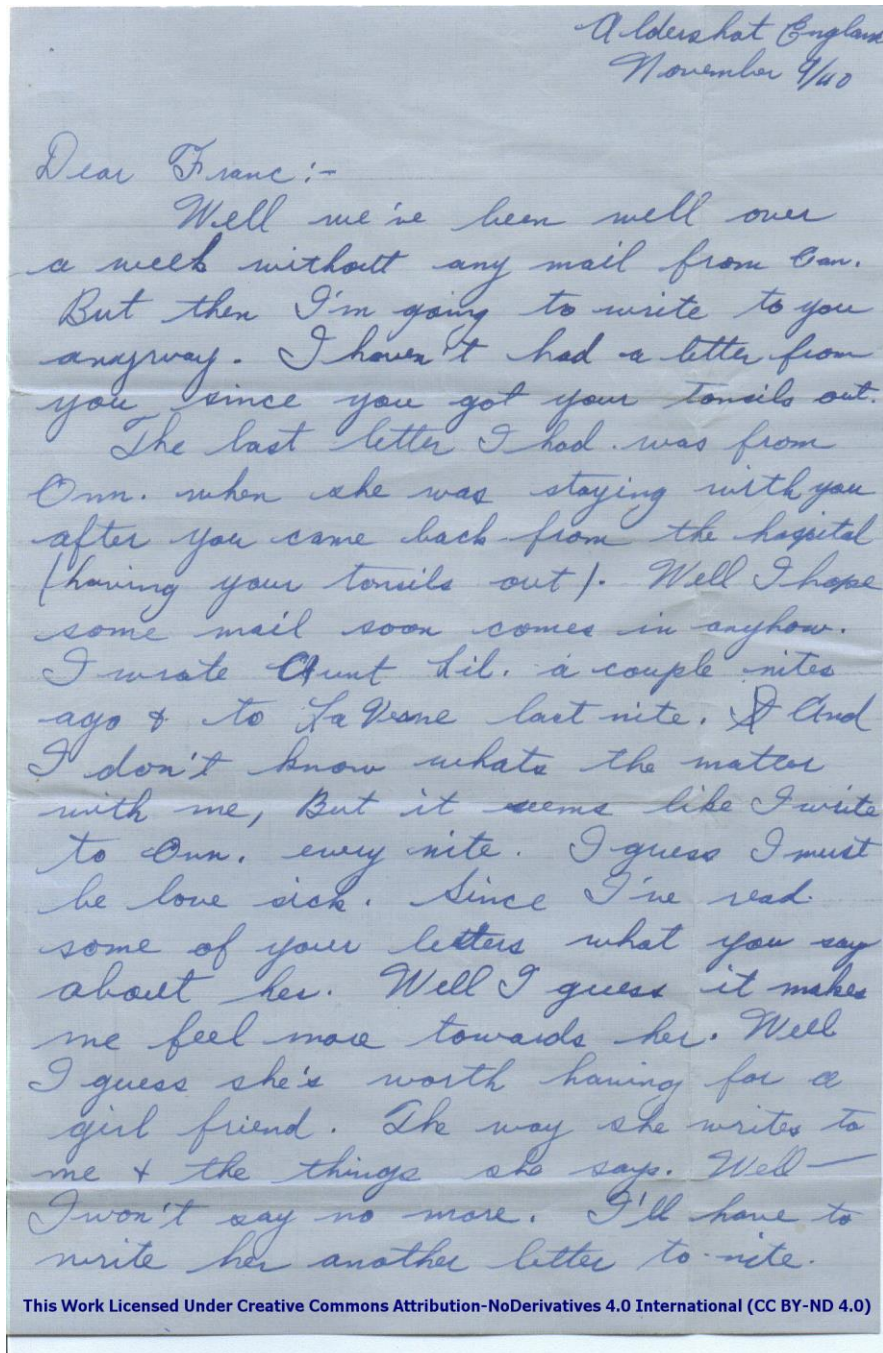 Aldershot England
November 9/40
Dear Franc:-
Well we've been well over
a week without any mail from Can.
But then I'm going to write to you
anyway. I haven't had a letter from
you since you got your tonsils out.
The last letter I had was from
Onn. when she was staying with you
after you came back from the hospital
(having your tonsils out). Well I hope
some mail soon comes in anyhow.
I wrote Aunt Lil. a couple nites
ago & to LaVerne last nite. And
I don't know whats the matter
with me, But it seems like I write
to Onn. every nite. I guess I must
be love sick. Since I've read
some of your letters what you say
about her. Well I guess it makes
me feel more towards her. Well
I guess she's worth having for a
girl friend. The way she writes to
me & the things she says. Well —
I won't say no more. I'll have to
write her another letter to-nite.
This Work Licensed Under Creative Commons Attribution-NoDerivatives 4.0 International (CC BY-ND 4.0)